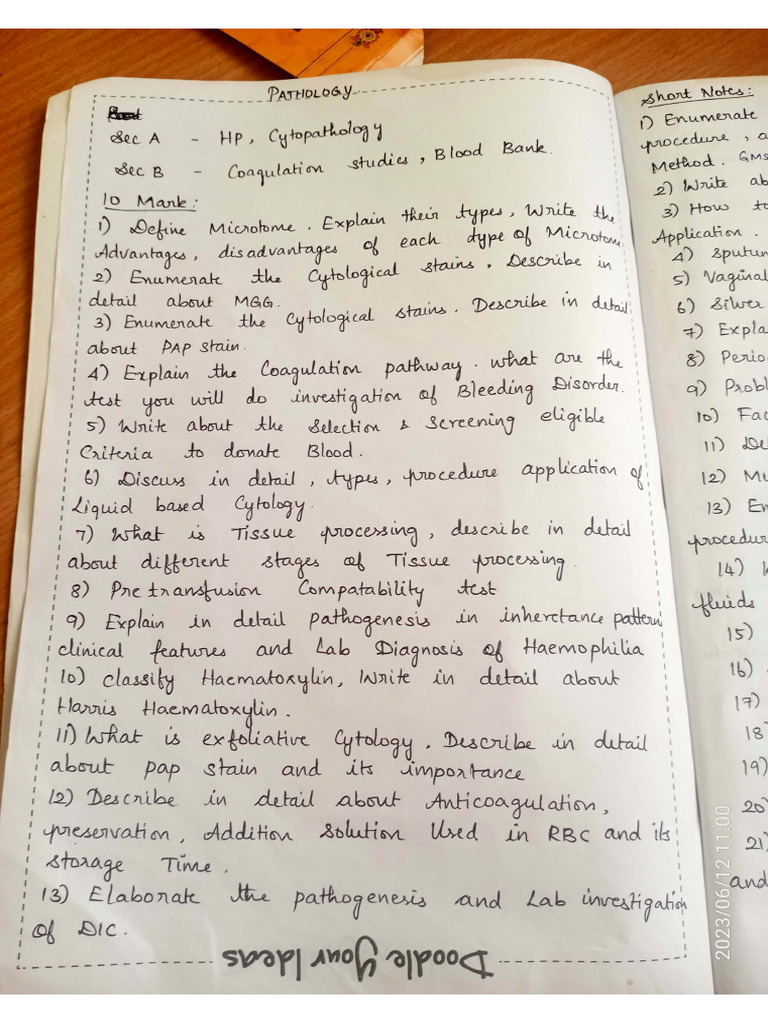 PATHOLOGY
Sec A - HP, Cytopathology
Sec B - Coagulation studies, Blood Bank.
10 Mark:
1) Define Microtome. Explain their types, Write the
Advantages, disadvantages of each type of Microtome
2) Enumerate the Cytological stains. Describe in
detail about MGG.
3) Enumerate the Cytological stains. Describe in detail
about PAP stain.
4) Explain the Coagulation pathway. what are the
test you will do investigation of Bleeding Disorder.
5) Write about the Selection & Screening eligible
Criteria to donate Blood.
6) Discuss in detail, types, procedure application of
Liquid based Cytology.
7) What is Tissue processing, describe in detail
about different stages of Tissue processing.
8) Pre transfusion Compatability test
9) Explain in detail pathogenesis in inheretance pattern
clinical features and Lab Diagnosis of Haemophilia
10) classify Haematoxylin, Write in detail about
Harris Haematoxylin.
11) What is exfoliative Cytology. Describe in detail
about pap stain and its importance
12) Describe in detail about Anticoagulation,
preservation, Addition Solution Used in RBC and its
Storage Time.
13) Elaborate the pathogenesis and Lab investigation
of DIC.
Doodle Your Ideas
Short Notes:
1) Enumerate
procedure, a
Method. GMS
2) Write ab
3) How to
Application.
4) Sputum
5) Vaginal
6) Silver
7) Expla
8) Perio
9) Probl
10) Fac
11) De
12) Mu
13) En
procedur
14)
fluids
15)
16)
17)
18)
19)
20)
21)
and
2023/06/12 11:00